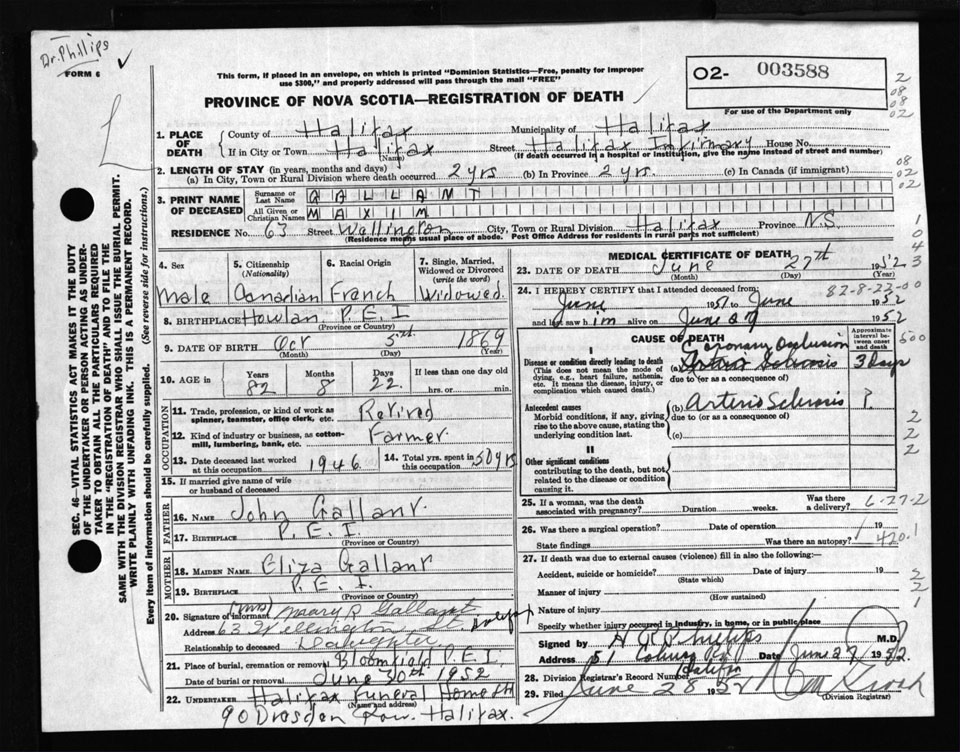 Dr. Phillips
FORM 6
This form, if placed in an envelope, on which is printed "Dominion Statistics—Free, penalty for improper
use $300," and properly addressed will pass through the mail "FREE"
O2- 003588
For use of the Department only
PROVINCE OF NOVA SCOTIA—REGISTRATION OF DEATH
1. PLACE OF DEATH
County of Halifax Municipality of Halifax
If in City or Town Halifax Street Halifax Infirmary House No.
(Name) (If death occurred in a hospital or institution, give the name instead of street and number)
2. LENGTH OF STAY (in years, months and days)
(a) In City, Town or Rural Division where death occurred 2 yrs (b) In Province 2 yrs. (c) In Canada (if immigrant)
3. PRINT NAME OF DECEASED
Surname or Last Name GALLANT
All Given or Christian Names MAXIM
RESIDENCE No. 63 Street Wellington City, Town or Rural Division Halifax Province N.S.
(Residence means usual place of abode. Post Office Address for residents in rural parts not sufficient)
4. Sex
Male
5. Citizenship (Nationality)
Canadian
6. Racial Origin
French
7. Single, Married, Widowed or Divorced (write the word)
Widowed
8. BIRTHPLACE Howlan P.E.I
(Province or Country)
9. DATE OF BIRTH Oct 5th 1869
(Month) (Day) (Year)
10. AGE in Years Months Days If less than one day old
82 8 22 hrs. or min.
OCCUPATION
11. Trade, profession, or kind of work as spinner, teamster, office clerk, etc. Retired
12. Kind of industry or business, as cotton-mill, lumbering, bank, etc. Farmer
13. Date deceased last worked at this occupation 1946
14. Total yrs. spent in this occupation 50 yrs
15. If married give name of wife or husband of deceased
FATHER
16. NAME John Gallant
17. BIRTHPLACE P.E.I.
(Province or Country)
MOTHER
18. MAIDEN NAME Eliza Gallant
19. BIRTHPLACE P.E.I.
(Province or Country)
20. Signature of informant (Mrs) Mary R Gallant
Address 63 Wellington St. Halifax
Relationship to deceased Daughter
21. Place of burial, cremation or removal Bloomfield P.E.I.
Date of burial or removal June 30th 1952
22. UNDERTAKER Halifax Funeral Home
(Name and address)
90 Dresden Row. Halifax.
MEDICAL CERTIFICATE OF DEATH
23. DATE OF DEATH June 27th 1952
(Month) (Day) (Year)
24. I HEREBY CERTIFY that I attended deceased from: 82-8-22-00
June 1951 to June 1952
and last saw him alive on June 27 1952
CAUSE OF DEATH
Approximate interval between onset and death
I
Disease or condition directly leading to death
(This does not mean the mode of dying, e.g., heart failure, asthenia, etc. It means the disease, injury, or complication which caused death.)
Coronary Occlusion
3 Days
due to (or as a consequence of)
Antecedent causes
Morbid conditions, if any, giving rise to the above cause, stating the underlying condition last.
(b) Arterio Sclerosis ?.
due to (or as a consequence of)
(c)
II
Other significant conditions
contributing to the death, but not related to the disease or condition causing it.
25. If a woman, was the death associated with pregnancy? Duration weeks. Was there a delivery?
6-27-2
26. Was there a surgical operation? Date of operation 19
State findings Was there an autopsy?
420.1
27. If death was due to external causes (violence) fill in also the following:—
Accident, suicide or homicide? Date of injury 19
(State which)
Manner of injury
(How sustained)
Nature of injury
Specify whether injury occurred in industry, in home, or in public place
Signed by H R Phillips M.D.
Address 51 Coburg Rd Date June 27 1952.
Halifax
28. Division Registrar's Record Number
29. Filed June 28 1952
(Division Registrar)
SEC. 46—VITAL STATISTICS ACT MAKES IT THE DUTY
OF THE UNDERTAKER OR PERSON ACTING AS UNDER-
TAKER TO OBTAIN ALL THE PARTICULARS REQUIRED
IN THE "REGISTRATION OF DEATH" AND TO FILE THE
SAME WITH THE DIVISION REGISTRAR WHO SHALL ISSUE THE BURIAL PERMIT.
WRITE PLAINLY WITH UNFADING INK. THIS IS A PERMANENT RECORD.
Every item of information should be carefully supplied. (See reverse side for instructions.)
2
08
08
02
08
02
1
0
4
3
500
2
2
2
2
2
1